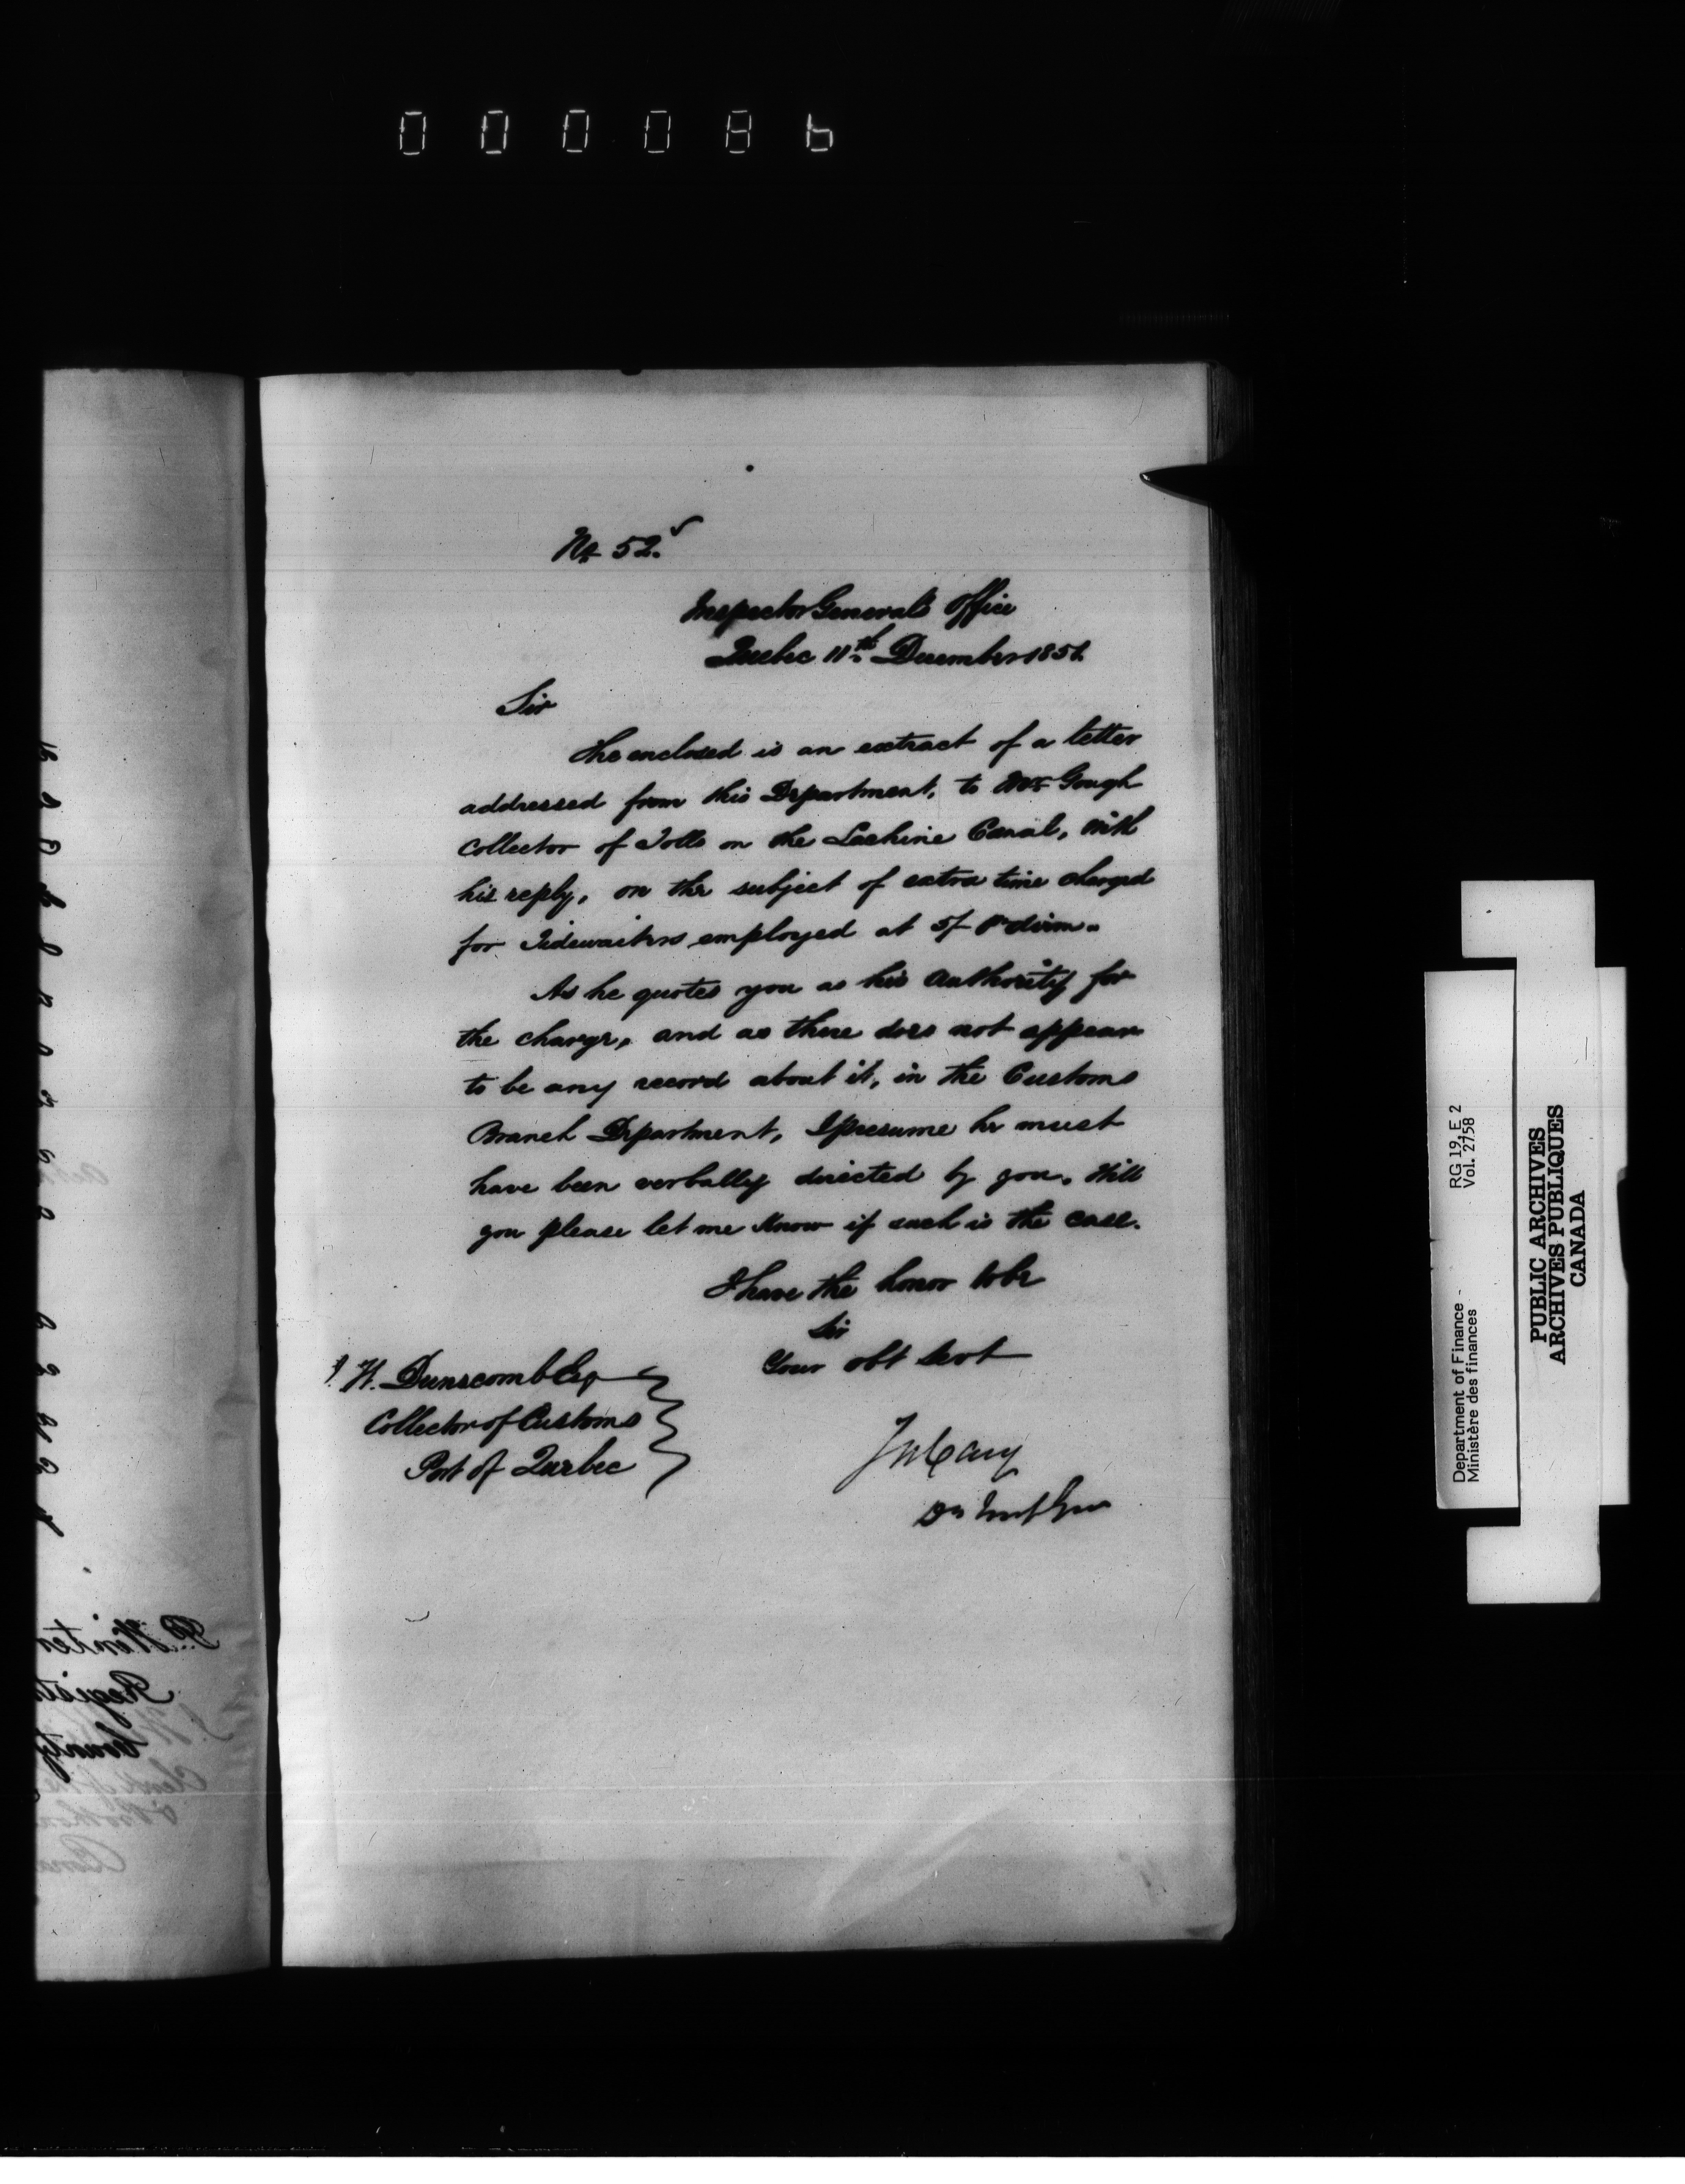 000086
No 52.
Inspector Generals Office
Quebec 11th December 1851.
Sir
The enclosed is an extract of a letter
addressed from this Department, to Mr Gough
Collector of Tolls on the Lachine Canal, with
his reply, on the subject of extra time charged
for Tidewaiters employed at 5/ pr diem.
As he quotes you as his authority for
the charge, and as there does not appear
to be any record about it, in the Customs
Branch Department, I presume he must
have been verbally directed by you. Will
you please let me Know if such is the case.
I have the honor to be
Sir
Your obt Servt
J. W. Dunscomb Esq
Collector of Customs
Port of Quebec
Jos Cary
Dy Insp Gen
RG 19, E 2
Vol. 2758
Department of Finance -
Ministère des finances
PUBLIC ARCHIVES
ARCHIVES PUBLIQUES
CANADA